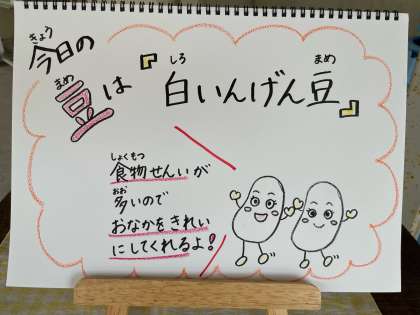 きょう
今日の
まめ
豆は
しろ まめ
『白いんげん豆』
しょくもつ
食物せんいが
おお
多いので
おなかをきれい
にしてくれるよ!